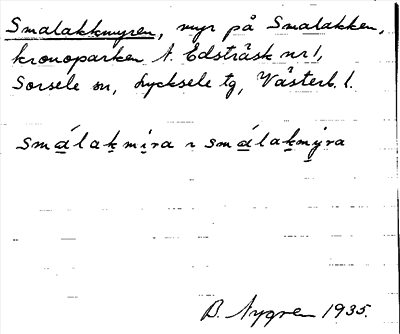 Smalakkmyren, myr på Smalakken,
kronoparken N. Edsträsk nr 1,
Sorsele sn, Lycksele tg, Västerb. l.
smálakmira ~ smálakmýra
B. Nygren 1935.